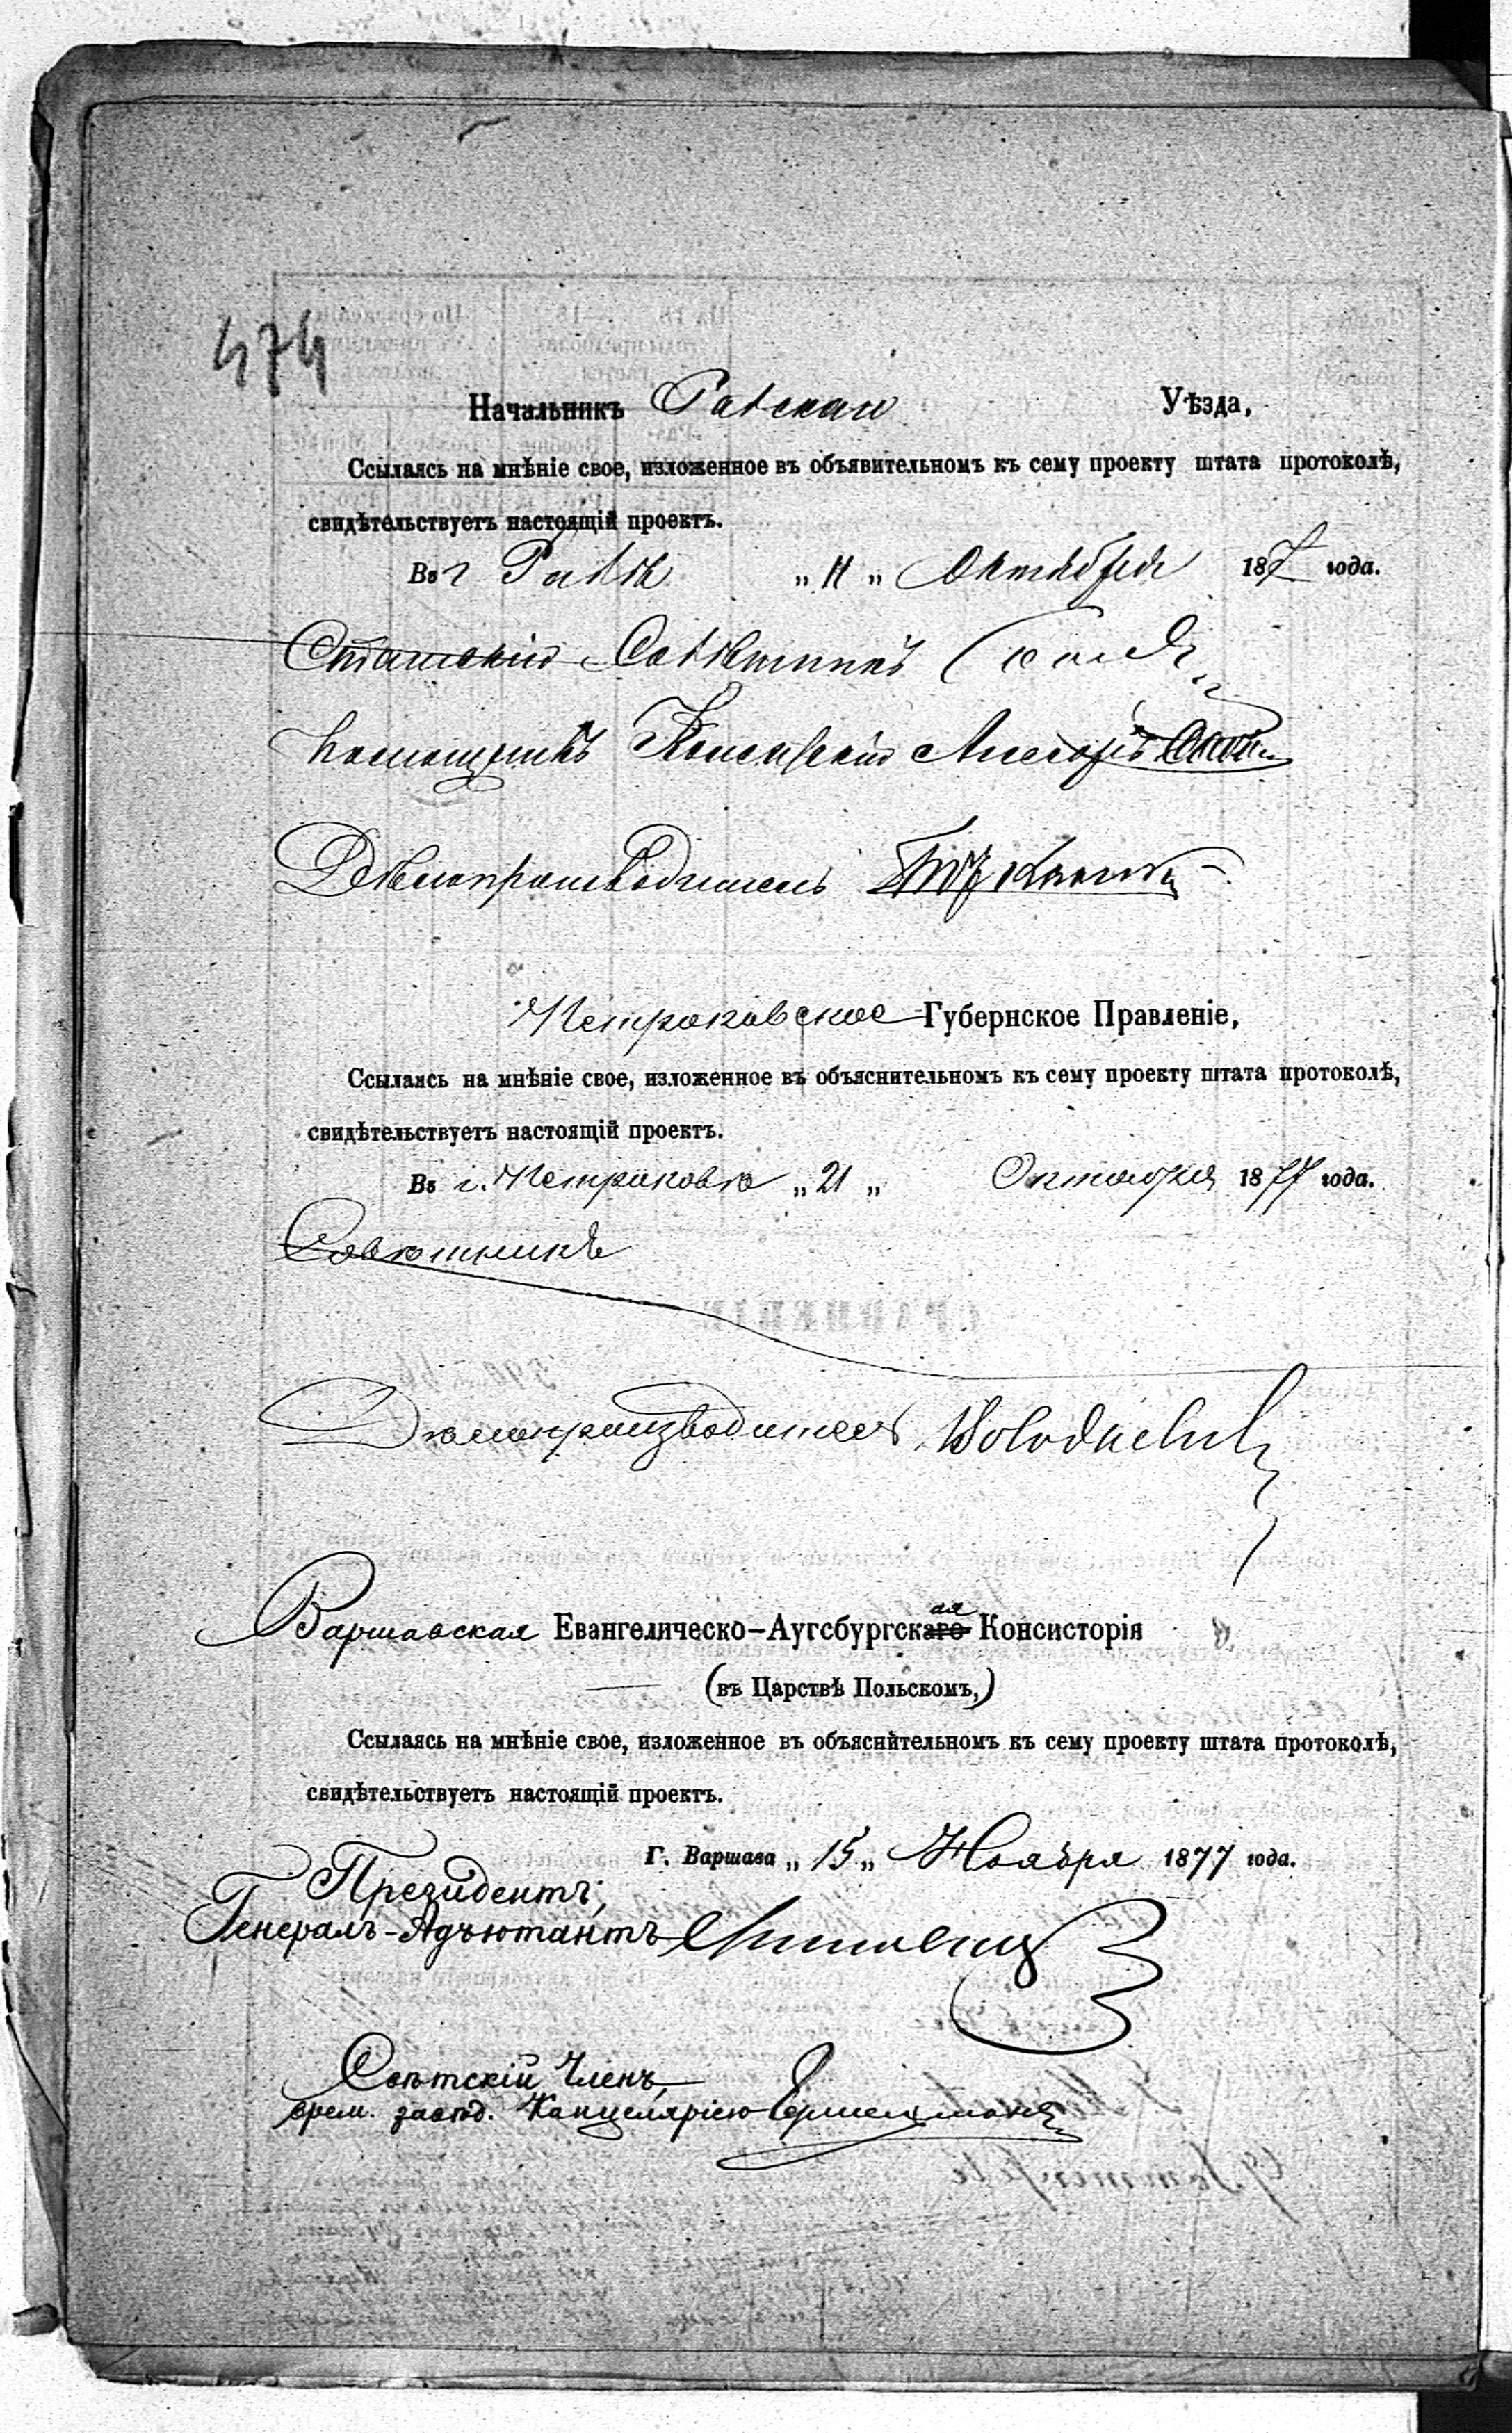 474
Начальникъ Равскаго Уѣзда,
Ссылаясь на мнѣніе свое, изложенное въ объявительномъ къ сему проекту штата протоколѣ,
свидѣтельствуетъ настоящій проектъ.
Въ г Равѣ „ 11 „ Октября 187 года.
Статскій Совѣтникъ
Помощникъ Коллежскій Ассесоръ
Дѣлопроизводитель
Петроковское Губернское Правленіе,
Ссылаясь на мнѣніе свое, изложенное въ объяснительномъ къ сему проекту штата протоколѣ,
свидѣтельствуетъ настоящій проектъ.
Въ г. Петроковѣ „ 21 „ Октября 1877 года.
Совѣтникъ
Дѣлопроизводитель
Варшавская Евангелическо-Аугсбургская Консисторія
(въ Царствѣ Польскомъ,)
Ссылаясь на мнѣніе свое, изложенное въ объяснительномъ къ сему проекту штата протоколѣ,
свидѣтельствуетъ настоящій проектъ.
Г. Варшава „ 15 „ Ноября 1877 года.
Президентъ,
Генералъ-Адъютантъ
Свѣтскій Членъ,
врем. завѣд. Канцеляріею